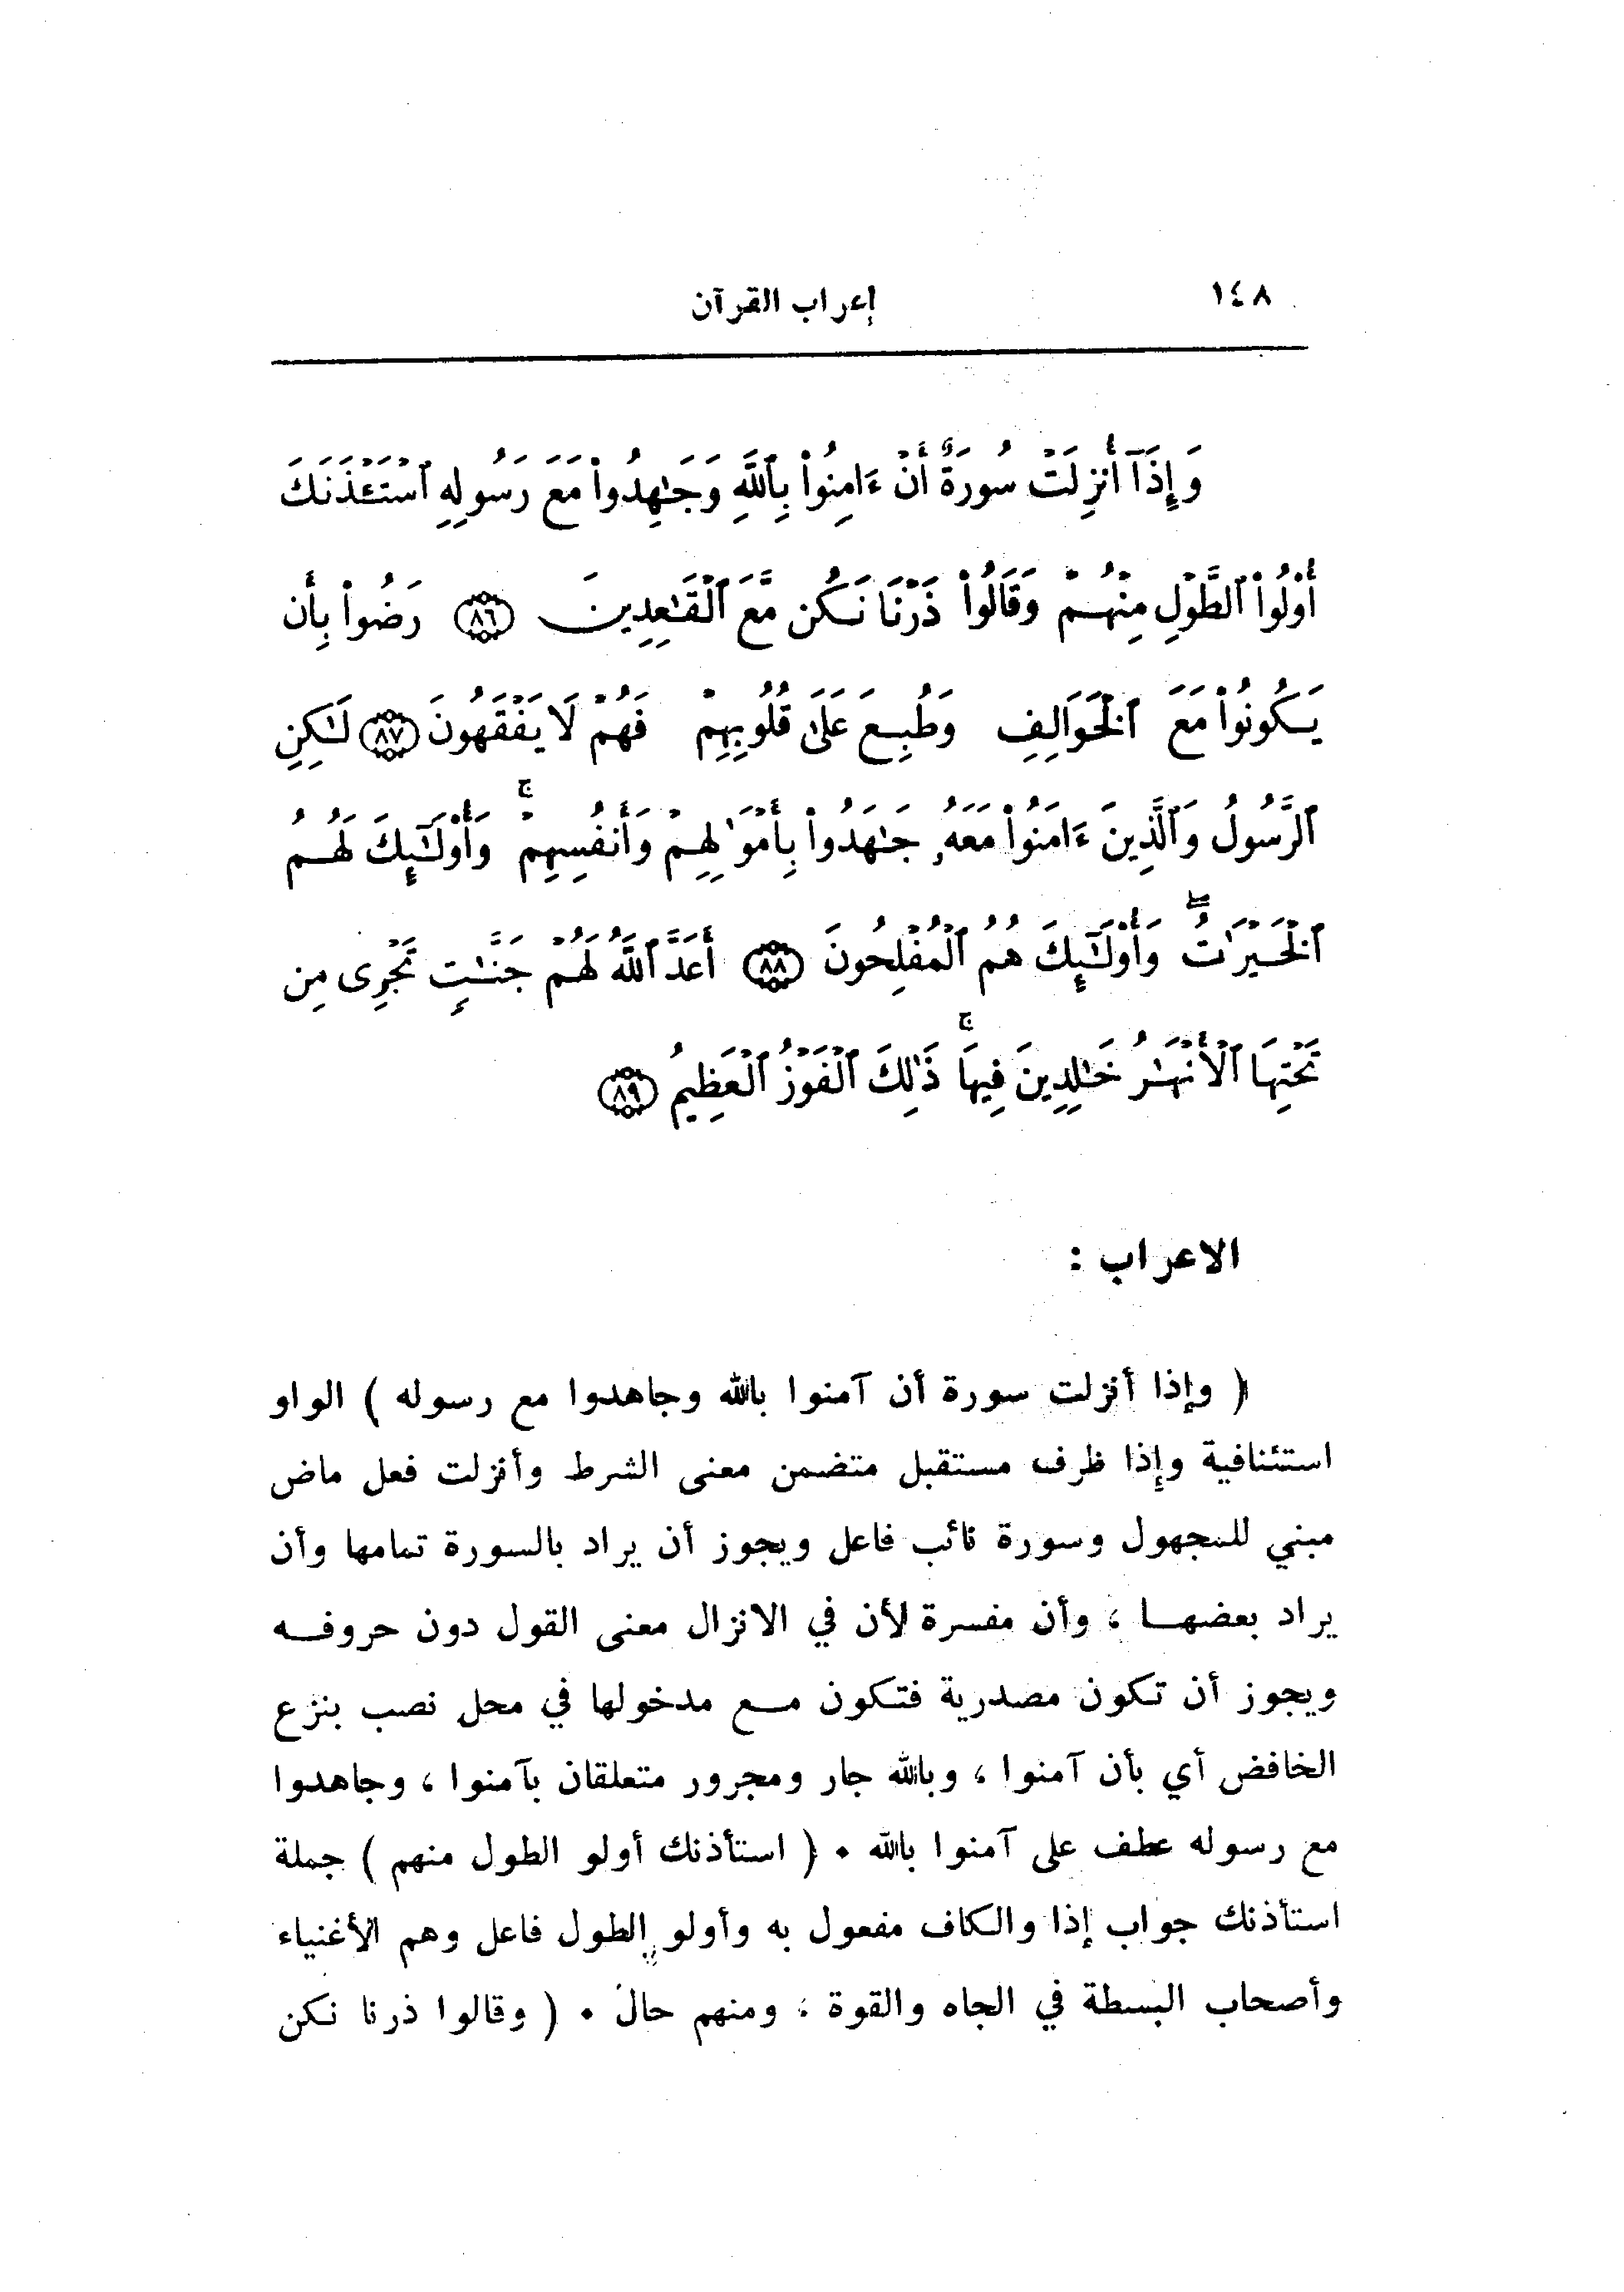 ١٤٨ إعراب القرآن
وَإِذَآ أُنزِلَتْ سُورَةٌ أَنْ ءَامِنُوا۟ بِٱللَّهِ وَجَـٰهِدُوا۟ مَعَ رَسُولِهِ ٱسْتَـْٔذَنَكَ
أُو۟لُوا۟ ٱلطَّوْلِ مِنْهُمْ وَقَالُوا۟ ذَرْنَا نَكُن مَّعَ ٱلْقَـٰعِدِينَ ٨٦ رَضُوا۟ بِأَن
يَكُونُوا۟ مَعَ ٱلْخَوَالِفِ وَطُبِعَ عَلَىٰ قُلُوبِهِمْ فَهُمْ لَا يَفْقَهُونَ ٨٧ لَـٰكِنِ
ٱلرَّسُولُ وَٱلَّذِينَ ءَامَنُوا۟ مَعَهُۥ جَـٰهَدُوا۟ بِأَمْوَٰلِهِمْ وَأَنفُسِهِمْ ۚ وَأُو۟لَـٰٓئِكَ لَهُمُ
ٱلْخَيْرَٰتُ ۖ وَأُو۟لَـٰٓئِكَ هُمُ ٱلْمُفْلِحُونَ ٨٨ أَعَدَّ ٱللَّهُ لَهُمْ جَنَّـٰتٍ تَجْرِى مِن
تَحْتِهَا ٱلْأَنْهَـٰرُ خَـٰلِدِينَ فِيهَا ۚ ذَٰلِكَ ٱلْفَوْزُ ٱلْعَظِيمُ ٨٩
الاعراب :
( وإذا أنزلت سورة أن آمنوا بالله وجاهدوا مع رسوله ) الواو
استئنافية وإذا ظرف مستقبل متضمن معنى الشرط وأنزلت فعل ماض
مبني للمجهول وسورة نائب فاعل ويجوز أن يراد بالسورة تمامها وأن
يراد بعضهـا ، وأن مفسرة لأن في الانزال معنى القول دون حروفـه
ويجوز أن تكون مصدرية فتكون مـع مدخولها في محل نصب بنزع
الخافض أي بأن آمنوا ، وبالله جار ومجرور متعلقان بآمنوا ، وجاهدوا
مع رسوله عطف على آمنوا بالله . ( استأذنك أولو الطول منهم ) جملة
استأذنك جواب إذا والكاف مفعول به وأولو الطول فاعل وهم الأغنياء
وأصحاب البسطة في الجاه والقوة ، ومنهم حال . ( وقالوا ذرنا نكن